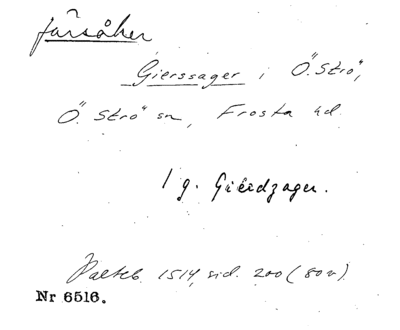 Järsåker
Gierssager i Ö. Strö,
Ö. Strö sn, Frosta hd.
1 g. Gieedzager.
Palteb. 1514, sid. 200 (80v)
Nr 6516.